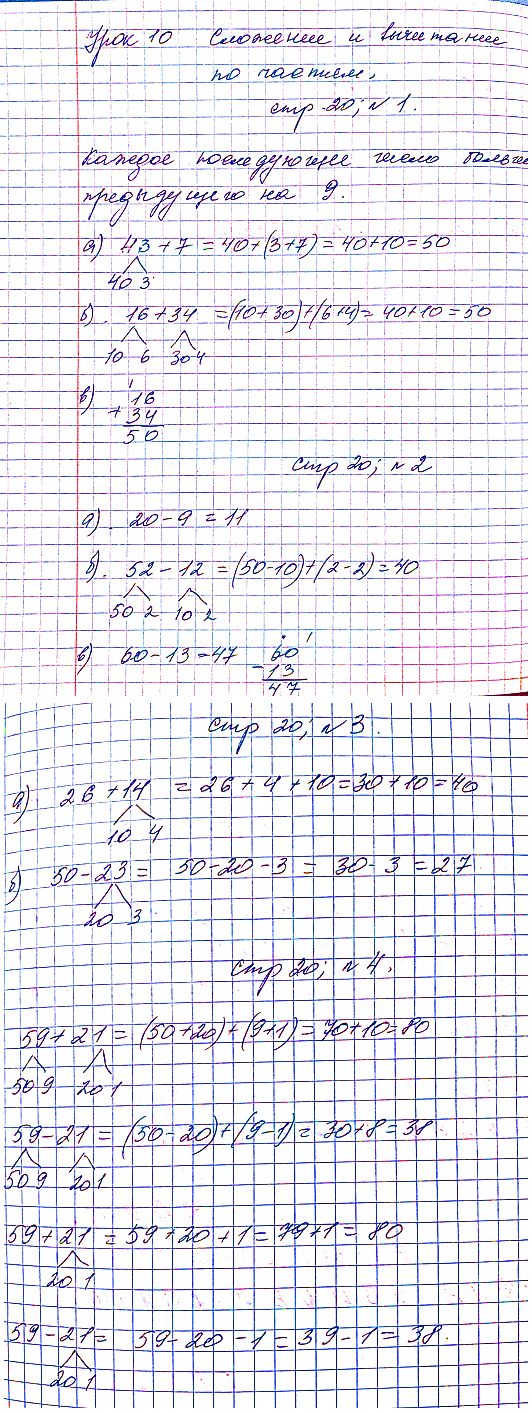 Урок 10 Сложение и вычитание
по частям.
стр 20; № 1.
Каждое последующее число больше
предыдущего на 9.
а) 43 + 7 = 40+(3+7) = 40+10=50
40 3
б). 16 + 34 = (10+30)+(6+4)= 40+10=50
10 6 30 4
в) 1
16
+ 34
50
стр 20; № 2
а). 20 - 9 = 11
б). 52 - 12 = (50-10)+(2-2)=40
50 2 10 2
в) 60 - 13 = 47 60
- 13
47
стр 20; № 3.
а) 26 + 14 = 26 + 4 + 10 = 30 + 10 = 40
10 4
б) 50 - 23 = 50 - 20 - 3 = 30 - 3 = 27
20 3
стр 20; № 4.
59 + 21 = (50+20)+(9+1) = 70+10=80
50 9 20 1
59 - 21 = (50-20)+(9-1) = 30+8=38
50 9 20 1
59 + 21 = 59 + 20 + 1 = 79+1 = 80
20 1
59 - 21 = 59 - 20 - 1 = 39 - 1 = 38.
20 1